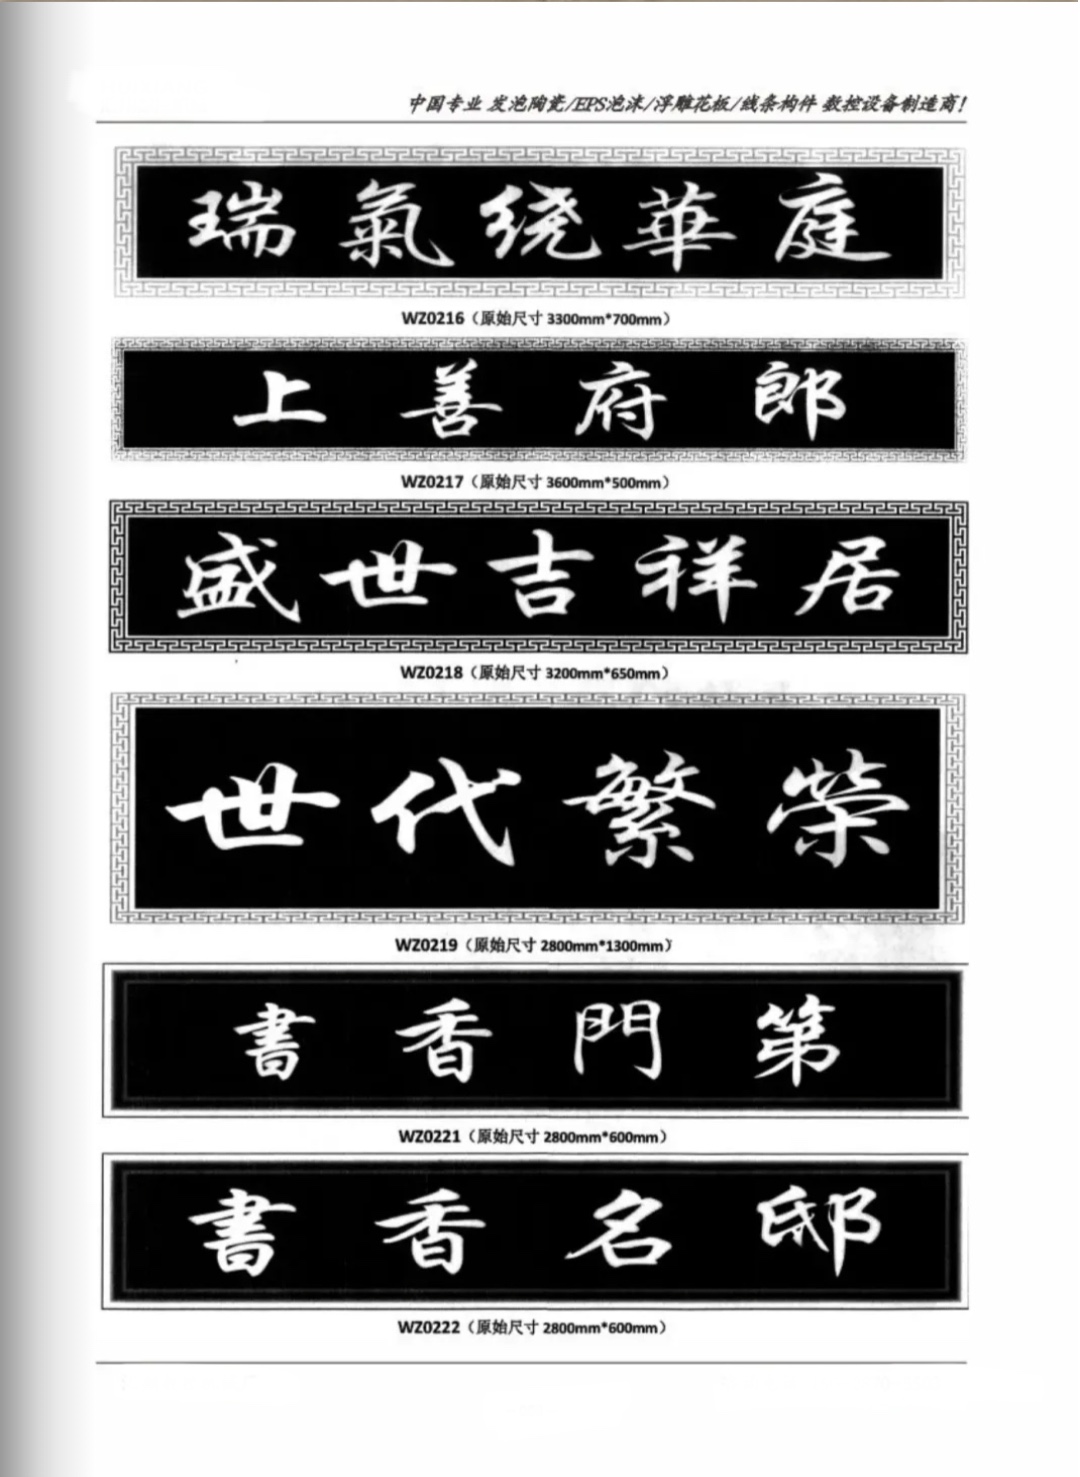 中国专业 发泡陶瓷/EPS泡沫/浮雕花板/线条构件 数控设备制造商！
瑞氣绕華庭
WZ0216（原始尺寸 3300mm*700mm）
上善府郎
WZ0217（原始尺寸 3600mm*500mm）
盛世吉祥居
WZ0218（原始尺寸 3200mm*650mm）
世代繁榮
WZ0219（原始尺寸 2800mm*1300mm）
書香門第
WZ0221（原始尺寸 2800mm*600mm）
書香名邸
WZ0222（原始尺寸 2800mm*600mm）